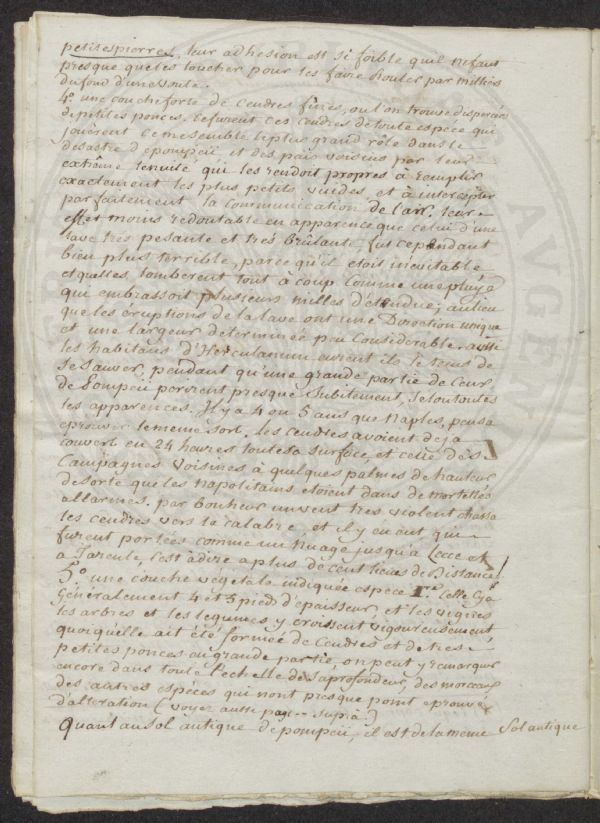 petites pierres, leur adhesion est si foible qu'il ne faut
presque que les toucher pour les faire Rouler par milliers
du fond d'une voute.
4.º une couche forte de cendres fines, ou l'on trouve dispersées
de petites ponces. Ce furent ces cendres de toute espece qui
jouérent ce me semble le plus grand rôle dans le
desastre de pompeii et des païs voisins par leur
extrême tenuité qui les rendoit propres à remplir
exactement les plus petits vuides et à intercepter
parfaitement la communication de l'air. leur
effet moins redoutable en apparence que celui d'une
lave tres pesante et tres brûlante, fut cependant
bien plus terrible, parce qu'il etoit inévitable
et qu'elles tomberent tout à coup comme une pluye
qui embrassoit plusieurs milles d'étendue; au lieu
que les eruptions de la lave ont une Direction unique
et une largeur determinée peu Considerable. aussi
les habitans d'Herculanum eurent ils le tems de
se sauver, pendant qu'une grande partie de Ceux
de Pompeii perirent presque subitement, selon toutes
les apparences. Il y a 4 ou 5 ans que Naples, pensa
eprouver le meme sort. les cendres avoient deja
couvert en 24 heures toute sa surface et celle des
Campagnes voisines à quelques palmes de hauteur
de sorte que les napolitains etoient dans de mortelles
allarmes. par bonheur un vent tres violent chassa
les cendres vers la calabre et il y en eut qui
furent portées comme un Nuage jusqu'à Lecce et
à Tarente, c'est à dire a plus de cent lieues de Distance
5.º une couche vegetale indiquée espece I.re Celle Cy a
Généralement 4 et 5 pieds d'epaisseur, et les vignes
les arbres et les legumes y croissent vigoureusement
quoiqu'elle ait été formée de Cendres et de tres
petites ponces en grande partie, on peut y remarquer
encore dans toute l'echelle de sa profondeur, des morceaux
des autres especes qui n'ont presque point eprouvé
d'alteration (voyez aussi pag -- suprà)
Quant au sol antique de pompeii, il est de la meme Sol antique